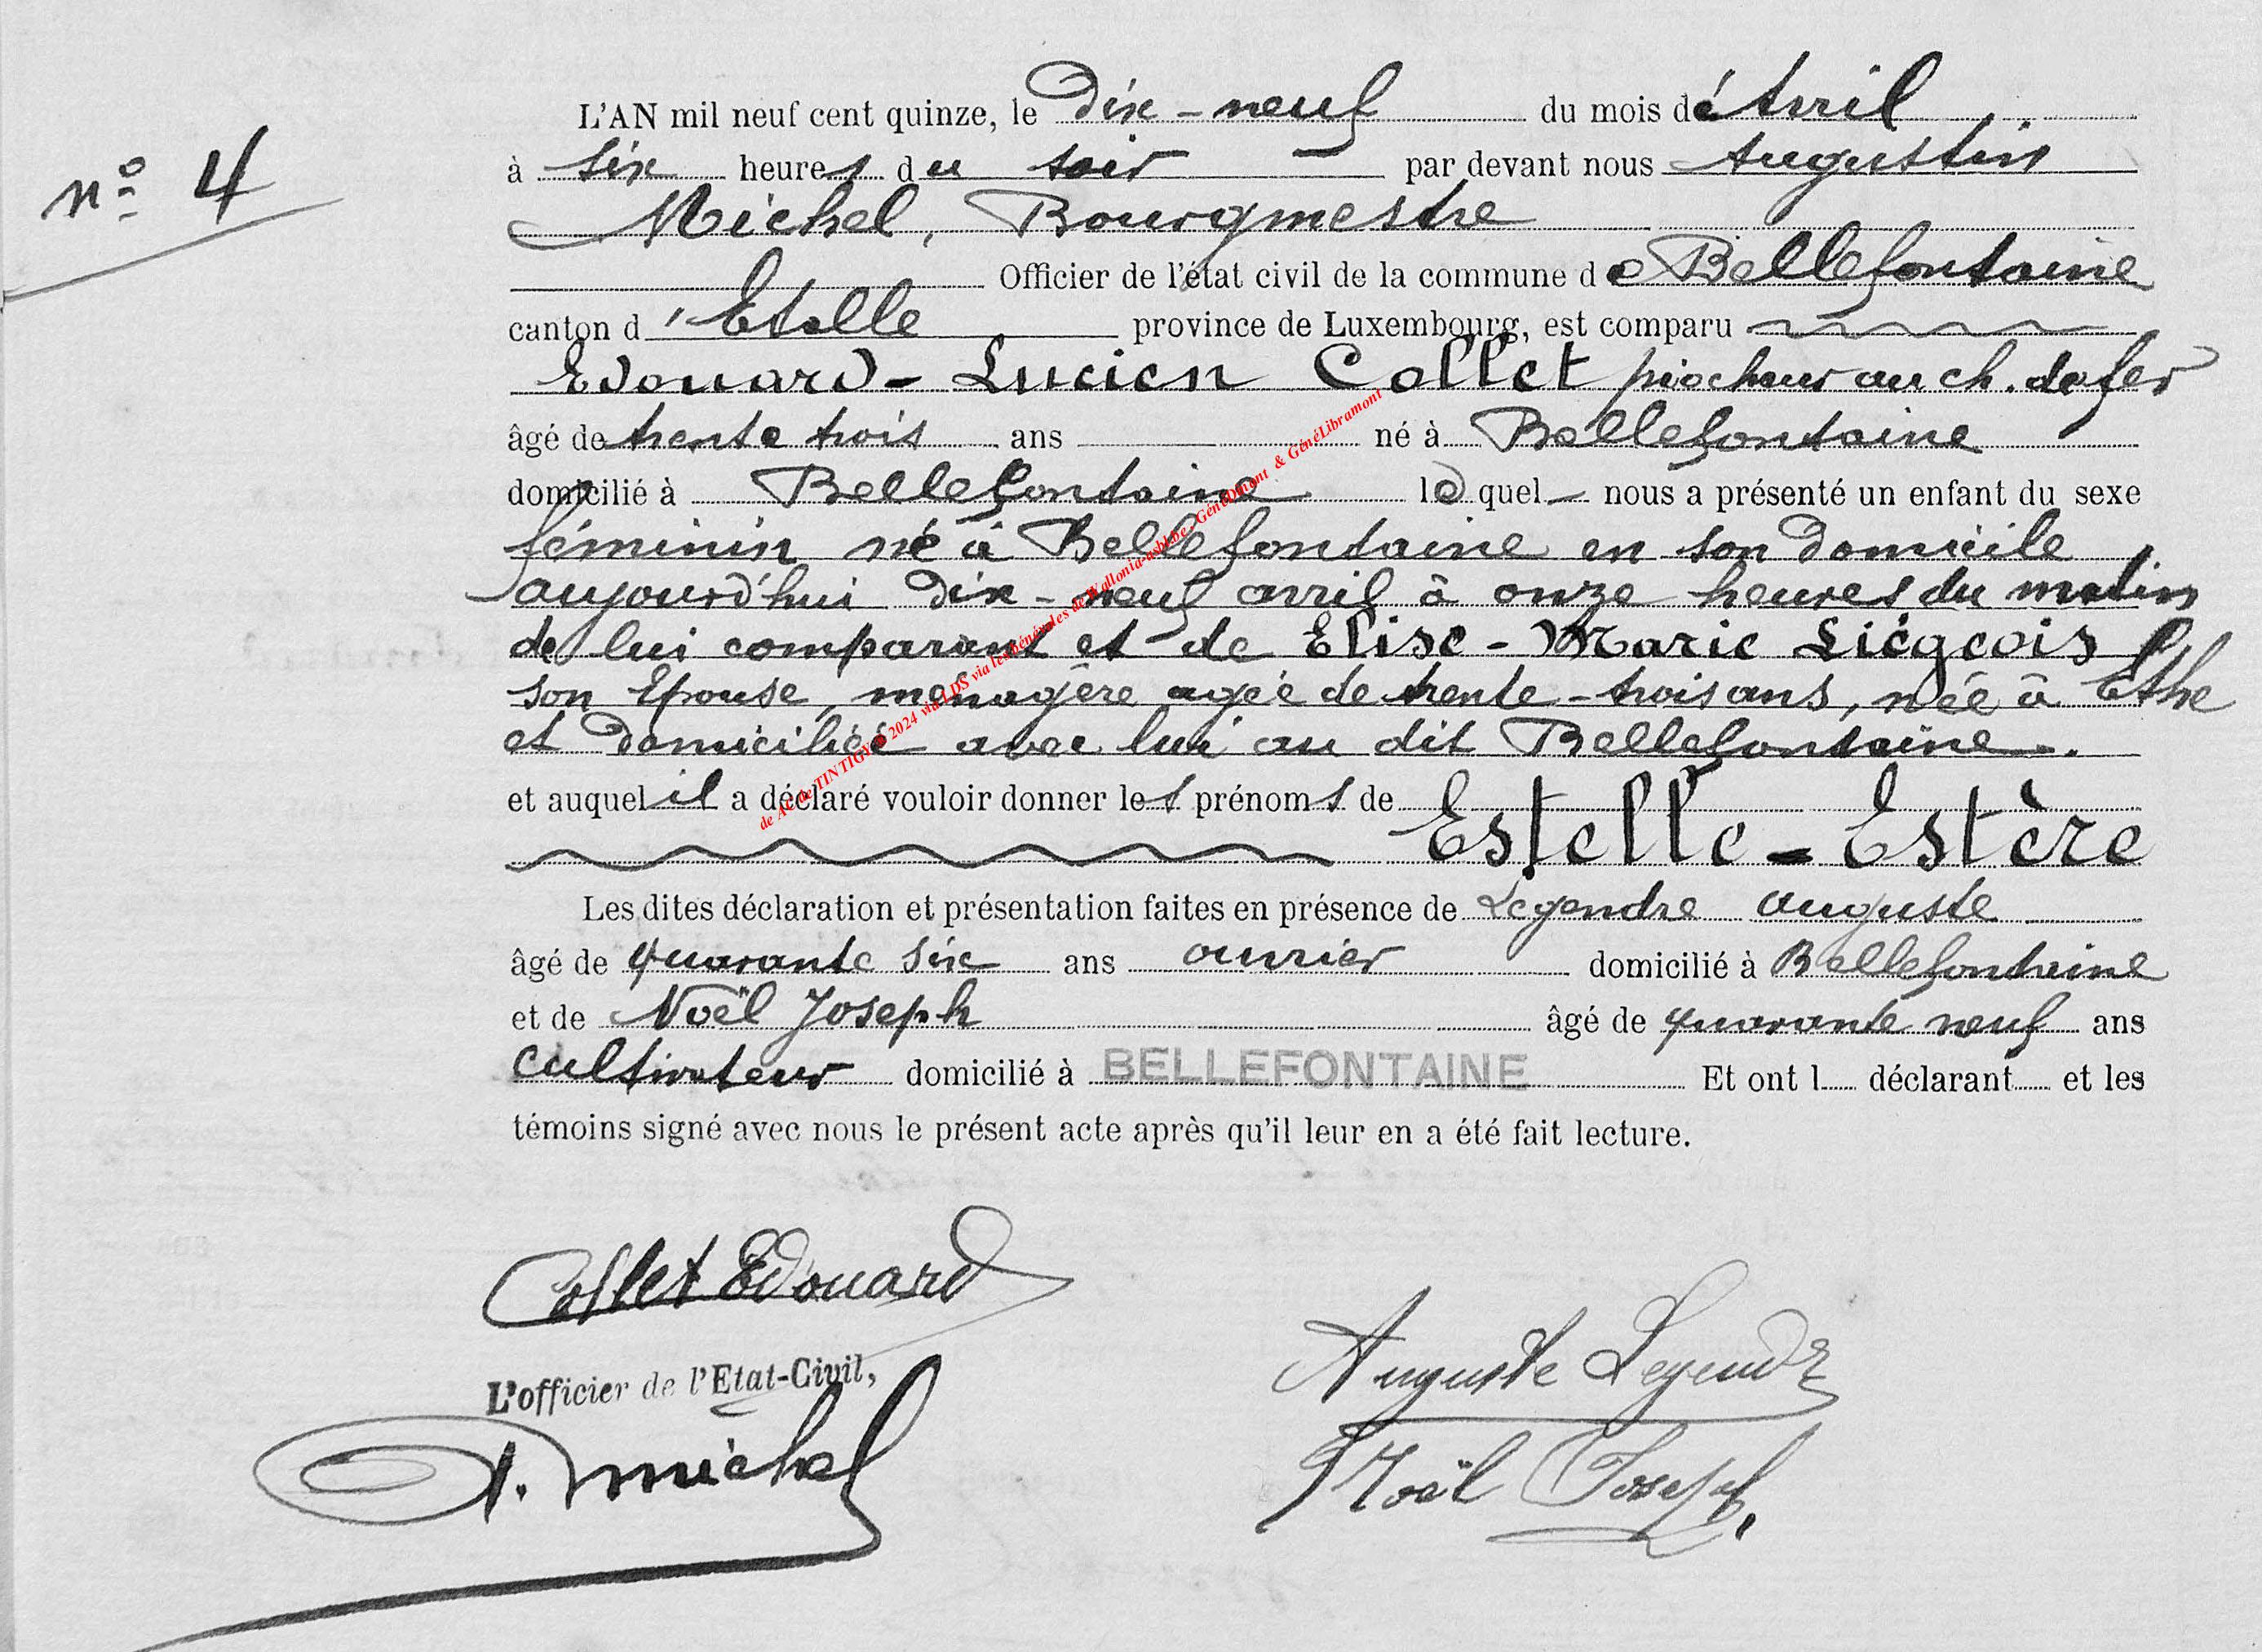 n° 4
L'AN mil neuf cent quinze, le Dix-neuf du mois d'Avril
à six heures du soir par devant nous Augustin
Michel, Bourgmestre
Officier de l'état civil de la commune de Bellefontaine
canton d'Etalle province de Luxembourg, est comparu
Edouard-Lucien Collet piocheur au ch. de fer
âgé de trente trois ans né à Bellefontaine
domicilié à Bellefontaine lequel nous a présenté un enfant du sexe
féminin né à Bellefontaine en son domicile
aujourd'hui dix-neuf avril à onze heures du matin
de lui comparant et de Elise-Marie Liégeois
son Epouse, ménagère agée de trente-trois ans, née à Ethe
et domiciliée avec lui au dit Bellefontaine.
et auquel il a déclaré vouloir donner les prénoms de
Estelle-Estère
Les dites déclaration et présentation faites en présence de Legendre Auguste
âgé de quarante six ans ouvrier domicilié à Bellefontaine
et de Noël Joseph âgé de quarante neuf ans
cultivateur domicilié à BELLEFONTAINE Et ont l déclarant et les
témoins signé avec nous le présent acte après qu'il leur en a été fait lecture.
Collet Edouard
Auguste Legendre
L'officier de l'Etat-Civil,
A. Michel
Noël Joseph
de AC de TINTIGNY © 2024 via LDS via les bénévoles de Wallonia-asbl.be, GénéDinant & GénéLibramont